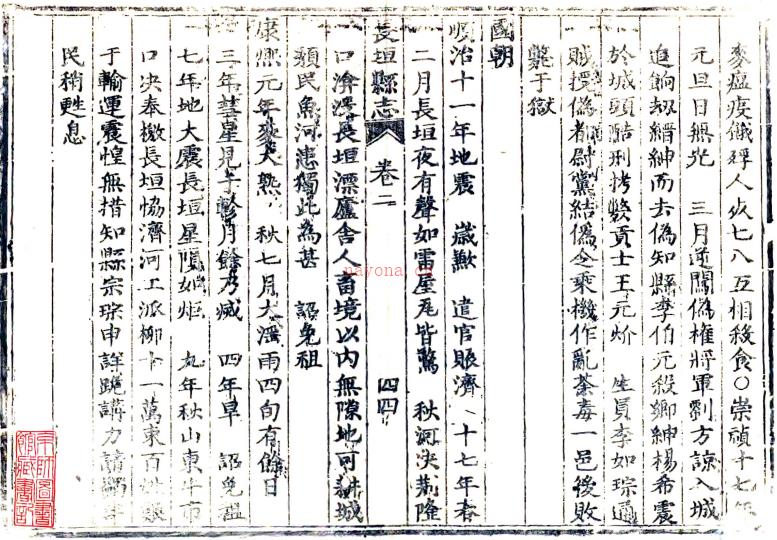 麥瘟疫饑殍人死七八互相殺食○崇禎十七年
元旦日無光 三月逆闖偽權將軍劉方諒入城
追餉刼縉紳而去偽知縣李伯元殺鄉紳楊希震
於城頭酷刑拷斃貢士王元炌 生員李如琮通
賊授偽都尉黨結偽令乘機作亂荼毒一邑後敗
斃于獄
國朝
順治十一年地震 歲歉 遣官賑濟 十七年春
二月長垣夜有聲如雷屋瓦皆驚 秋河決荊隆
長垣縣志 卷二 四四
口渰沒長垣漂廬舍人畜境以內無隙地可耕城
頹民魚河患獨此為甚 詔免租
康熙元年麥大熟 秋七月大澍雨四旬有餘日
三年彗星見于軫月餘乃滅 四年旱 詔免
七年地大震長垣星隕如炬 九年秋山東牛市
口決奉檄長垣協濟河工派柳十一萬束百姓
于輸運震惶無措知縣宗琮申詳跪講力請
民稍甦息
京師圖書館藏書記
nayona.cn